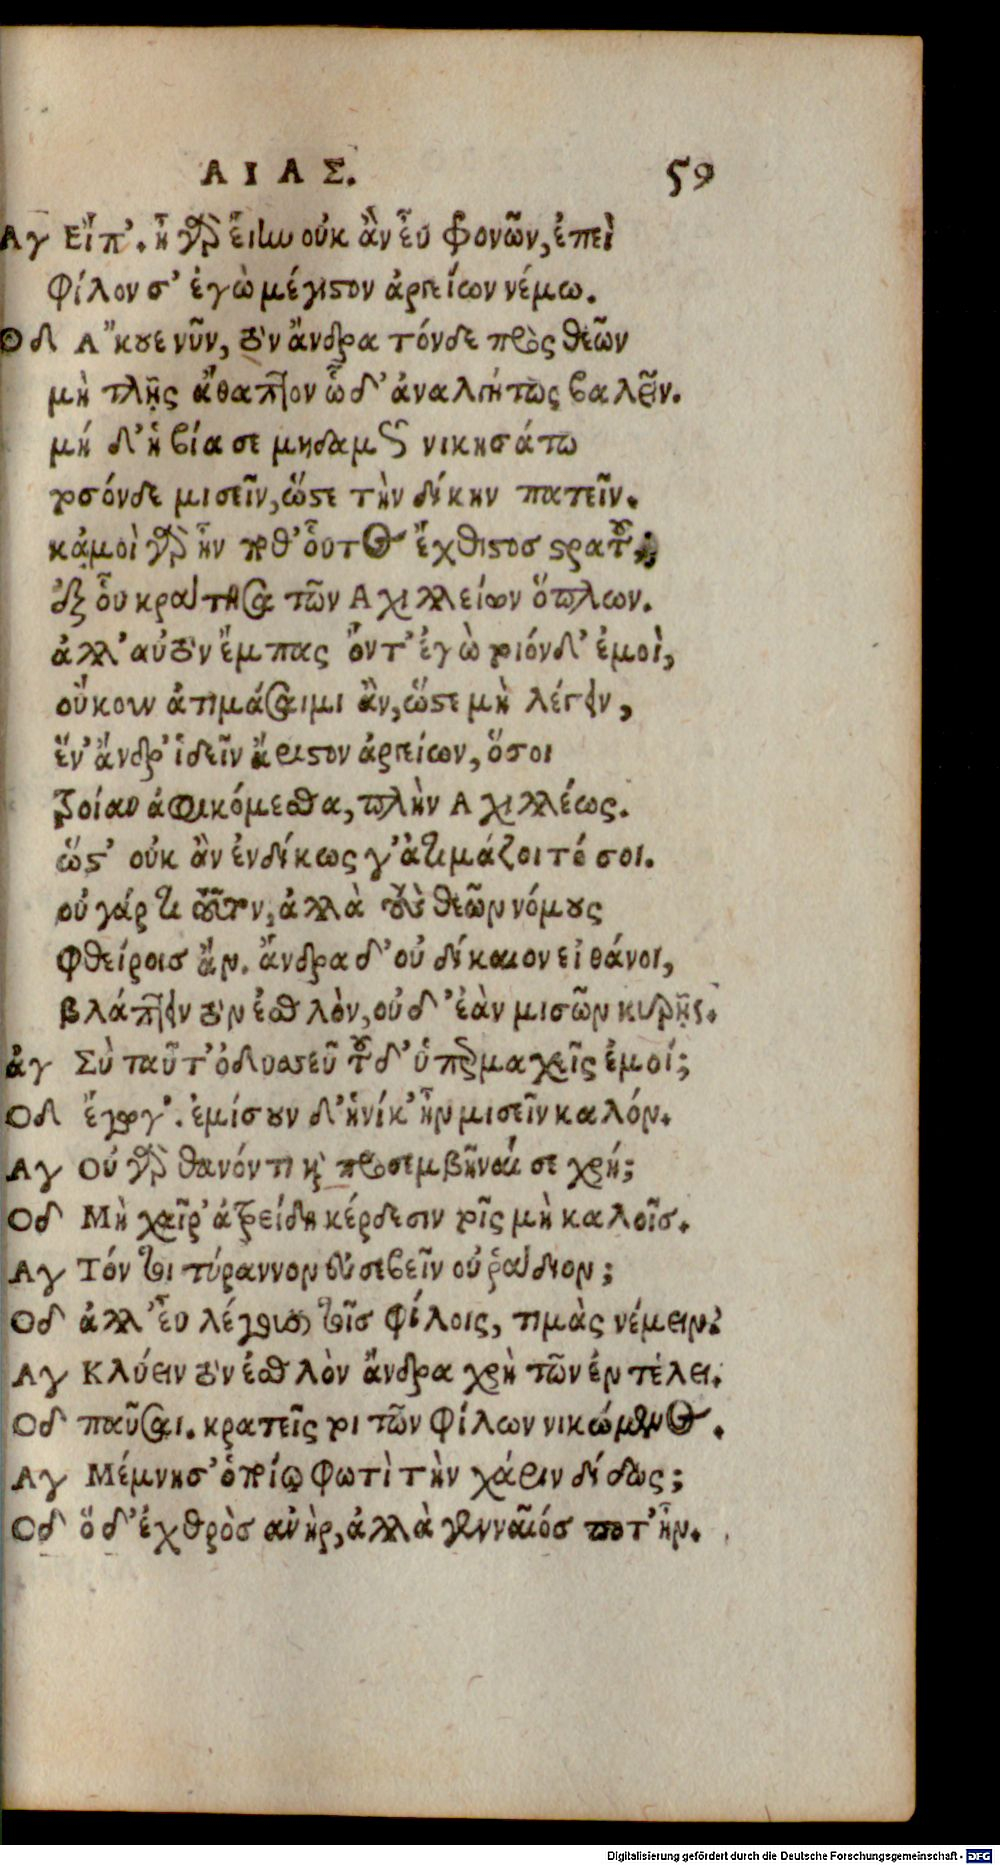 ΑΙΑΣ. 59
Αγ Εἶπ'. ἦ γὰρ εἴην οὐκ ἂν εὖ φρονῶν, ἐπεὶ
φίλον σ' ἐγὼ μέγιστον ἀργείων νέμω.
Οδ Ἄκουε νῦν, τὸν ἄνδρα τόνδε πρὸς θεῶν
μὴ τλῇς ἄθαπτον ὧδ' ἀναλγήτως βαλεῖν.
μή δ' ἡ βία σε μηδαμῶς νικησάτω
τοσόνδε μισεῖν, ὥστε τὴν δίκην πατεῖν.
κἀμοὶ γὰρ ἦν ποθ' οὗτος ἔχθιστος στρατοῦ,
ἐξ οὗ κράτησα τῶν Αχιλλείων ὅπλων.
ἀλλ' αὐτὸν ἔμπας ὄντ' ἐγὼ τοιόνδ' ἐμοὶ,
οὔκουν ἀτιμάσαιμι ἂν, ὥστε μὴ λέγειν,
ἕν' ἄνδρ' ἰδεῖν ἄριστον ἀργείων, ὅσοι
τροίαν ἀφικόμεσθα, πλὴν Αχιλλέως.
ὥστ' οὐκ ἂν ἐνδίκως γ' ἀτιμάζοιτό σοι.
οὐ γάρ τι τοῦτον, ἀλλὰ τοὺς θεῶν νόμους
φθείροις ἄν. ἄνδρα δ' οὐ δίκαιον εἰ θάνοι,
βλάπτειν τὸν ἐσθλὸν, οὐδ' ἐὰν μισῶν κυρῇς.
ἀγ Σὺ ταῦτ' ὀδυσσεῦ τοῦδ' ὑπερμαχεῖς ἐμοί;
Οδ ἔγωγ'. ἐμίσουν δ' ἡνίκ' ἦν μισεῖν καλόν.
Αγ Οὐ γὰρ θανόντι καὶ προσεμβῆναί σε χρή;
Οδ Μὴ χαῖρ' ἀτρείδη κέρδεσιν τοῖς μὴ καλοῖς.
Αγ Τόν τοι τύραννον εὐσεβεῖν οὐ ῥᾴδιον;
Οδ ἀλλ' εὖ λέγουσι τοῖς φίλοις, τιμὰς νέμειν.
Αγ Κλύειν τὸν ἐσθλὸν ἄνδρα χρὴ τῶν ἐν τέλει.
Οδ παῦσαι. κρατεῖς τοι τῶν φίλων νικώμενος.
Αγ Μέμνησ' ὁποίῳ φωτὶ τὴν χάριν δίδως;
Οδ ὅδ' ἐχθρὸς ἀνὴρ, ἀλλὰ γενναῖός ποτ' ἦν.
Digitalisierung gefördert durch die Deutsche Forschungsgemeinschaft - DFG